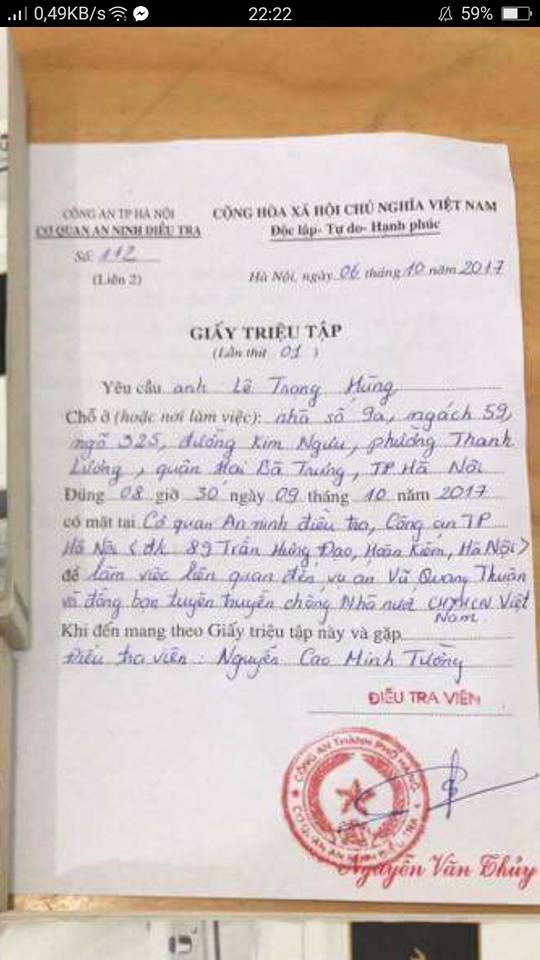 0,49KB/s 22:22 59%
CÔNG AN TP HÀ NỘI
CỘNG HÒA XÃ HỘI CHỦ NGHĨA VIỆT NAM
CƠ QUAN AN NINH ĐIỀU TRA
Độc lập- Tự do- Hạnh phúc
Số: 112
(Liên 2)
Hà Nội, ngày 06 tháng 10 năm 2017
GIẤY TRIỆU TẬP
(Lần thứ 01)
Yêu cầu anh Lê Trọng Hùng
Chỗ ở (hoặc nơi làm việc): nhà số 9a, ngách 59,
ngõ 325, đường Kim Ngưu, phường Thanh
Lương, quận Hai Bà Trưng, TP Hà Nội
Đúng 08 giờ 30 ngày 09 tháng 10 năm 2017
có mặt tại Cơ quan An ninh điều tra, Công an TP
Hà Nội <đ/c: 89 Trần Hưng Đạo, Hoàn Kiếm, Hà Nội>
để làm việc liên quan đến vụ án Vũ Quang Thuận
và đồng bọn tuyên truyền chống Nhà nước CHXHCN Việt
Nam.
Khi đến mang theo Giấy triệu tập này và gặp
Điều tra viên: Nguyễn Cao Minh Tường
ĐIỀU TRA VIÊN
CÔNG AN THÀNH PHỐ HÀ NỘI
CƠ QUAN AN NINH ĐIỀU TRA
Nguyễn Văn Thủy